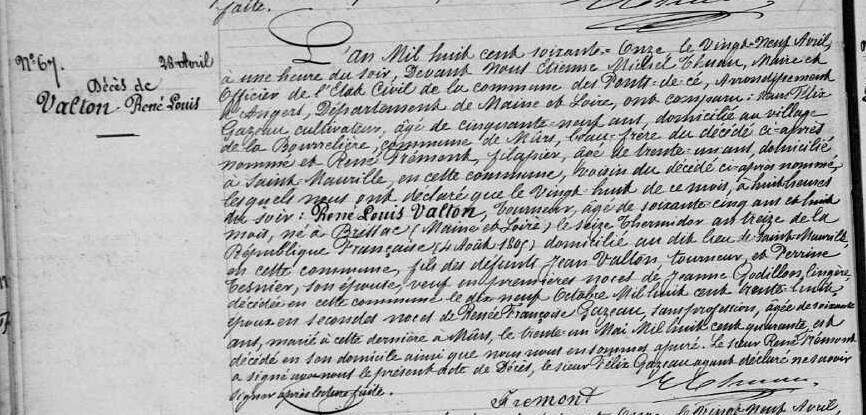 faite.
N° 67. 28 Avril
Décès de
Valton René Louis
L'an Mil huit cent soixante-Onze le Vingt-neuf Avril,
à une heure du soir, Devant Nous Etienne Michel Thuau, Maire et
Officier de l'Etat Civil de la commune des Ponts-de-cé, Arrondissement
d'Angers, Département de Maine et Loire, ont comparu : Félix
Gazeau cultivateur, âgé de cinquante-neuf ans, domicilié au village
de la Bourrelière, commune de Mûrs, beau-frère du décédé ci-après
nommé et René Frémont, filassier, âgé de trente-un ans, domicilié
à Saint-Maurille, en cette commune, voisin du décédé ci-après nommé,
lesquels nous ont déclaré que le Vingt huit de ce mois, à huit heures
du soir : René Louis Valton, Tourneur, âgé de soixante-cinq ans et huit
mois, né à Brissac (Maine et Loire) le seize Thermidor an treize de la
République Française (4 Août 1805) domicilié au dit lieu de Saint-Maurille,
en cette commune, fils des défunts Jean Valton, tourneur, et Perrine
Tesnier, son épouse, veuf en premières noces de Jeanne Godillon, lingère,
décédée en cette commune le dix neuf Octobre Mil huit cent trente-huit
époux en secondes noces de Renée Françoise Gazeau, sans profession, âgée de soixante
ans, marié à cette dernière à Mûrs, le trente-un Mai Mil huit cent quarante, est
décédé en son domicile ainsi que nous nous en sommes assuré. Le sieur René Frémont
a signé avec nous le présent acte de Décès, le sieur Félix Gazeau ayant déclaré ne savoir
signer après lecture faite.
Fremont